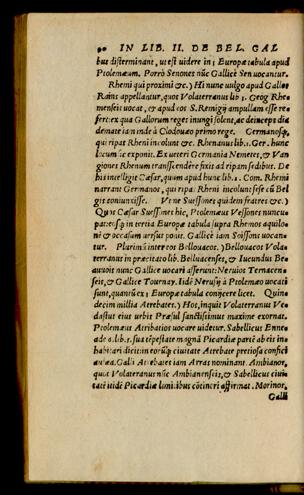 90 IN LIB. II. DE BEL. GAL
bus disterminant, ut est uidere in 3 Europæ tabula apud
Ptolemæum. Porrò Senones nūc Gallicè Sen uocantur.
Rhemi qui proximi &c.) Hi nunc uulgo apud Gallos
Rains appellantur, quos Volaterranus lib 3. Geog Rhe
menseis uocat, & apud eos S. Remigij ampullam esse re-
fert: ex qua Gallorum reges inungi solent, ac deinceps dia
demate iam inde à Clodouæo primo rege. Germanosq́;
qui ripas Rheni incolunt &c. Rhenanus lib.1. Ger. hunc
locum sic exponit. Ex ueteri Germania Nemetes, & Van
giones Rhenum transscendere fixis ad ripam sedibus. De
his intelligit Cæsar, quum apud hunc lib.2. Com. Rhemi
narrant Germanos, qui ripas Rheni incolunt sese cū Bel
gis coniunxisse. Vt ne Suessones quidem fratres &c.)
Quos Cæsar Suessones hic, Ptolemæus Vessones nuncu
pat: estq́; in tertia Europæ tabula supra Rhemos aquilo
nē & occasum uersus positi. Gallicè iam Soissons uocan-
tur. Plurimū inter eos Bellouacos.) Bellouacos Vola-
terranus in præcitato lib. Beluacenses, & Iucundus Be-
auuois nunc Gallicè uocari asserunt: Neruios Ternacen-
seis, & Gallicè Tournay. Iidē Nerusij à Ptolemæo uocati
sunt, quantū ex 3 Europæ tabula conijcere licet. Quin
decim millia Atrebates.) Hos, inquit Volaterranus Ve
dastus eius urbis Præsul sanctissimus maxime exornat.
Ptolemæus Atribatios uocare uidetur. Sabellicus Enne-
ade 6.lib.1. sua tēpestate magnā Picardiæ partē ab eis in-
habitari dicit: in eorūq́; ciuitate Atrebate pretiosa confici
aulæa. Galli Atrebates iam Arras nominant. Ambianos,
quos Volaterranus nūc Ambianenseis, & Sabellicus ciui
tati uidē Picardiæ limitibus cōtineri affirmat. Morinos,
Galli